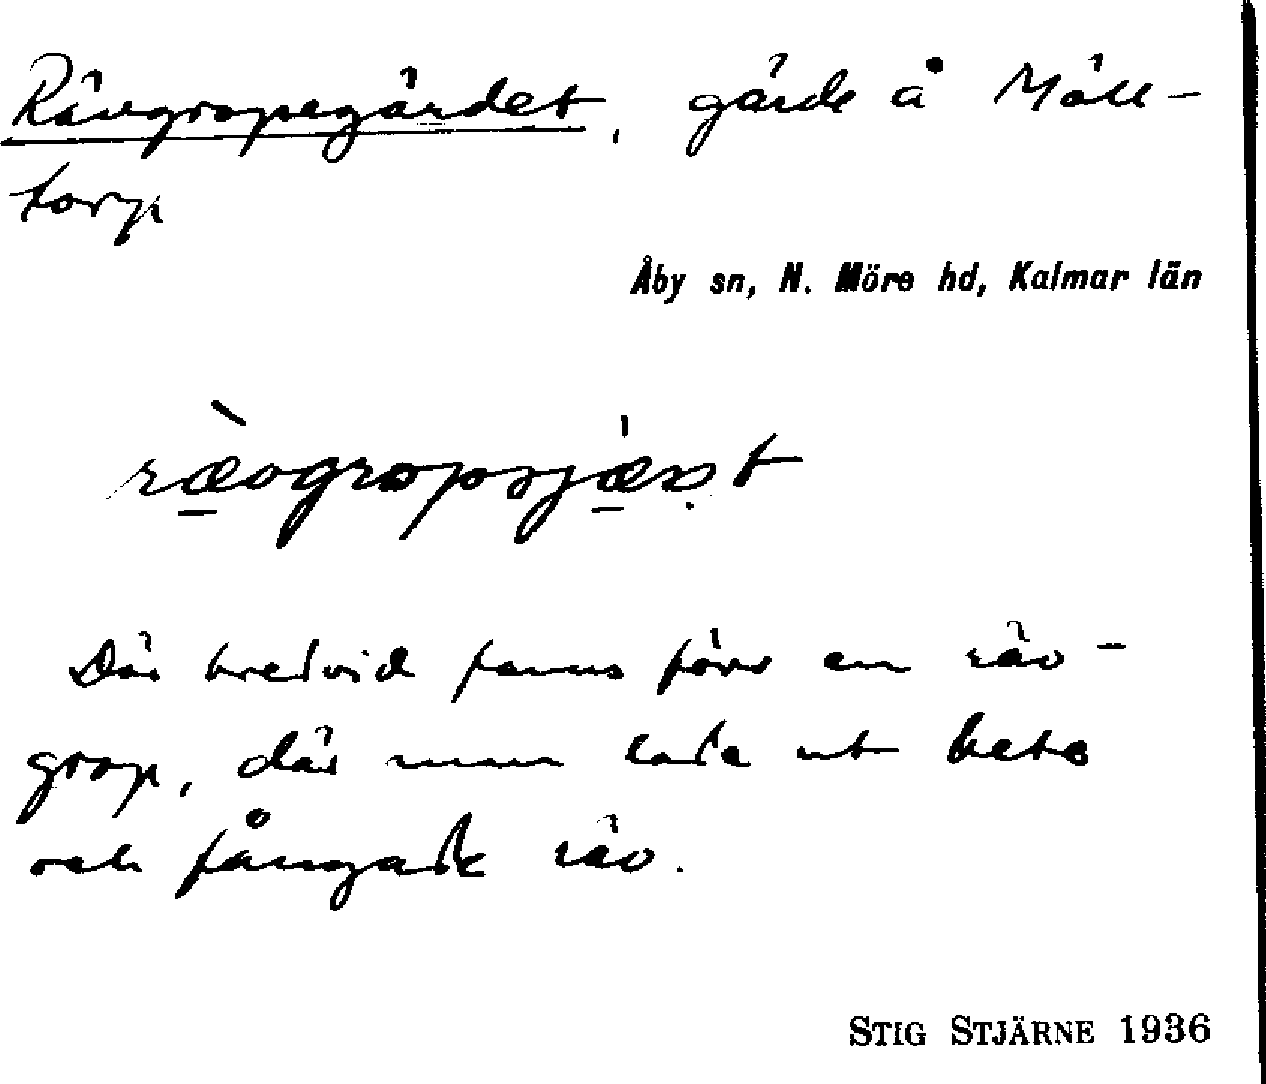 Rävgropegärdet, gärde å Möll-
torp
Åby sn, N. Möre hd, Kalmar län
Där bredvid fanns förr en räv-
grop, där man lade ut bete
och fångade räv.
STIG STJÄRNE 1936